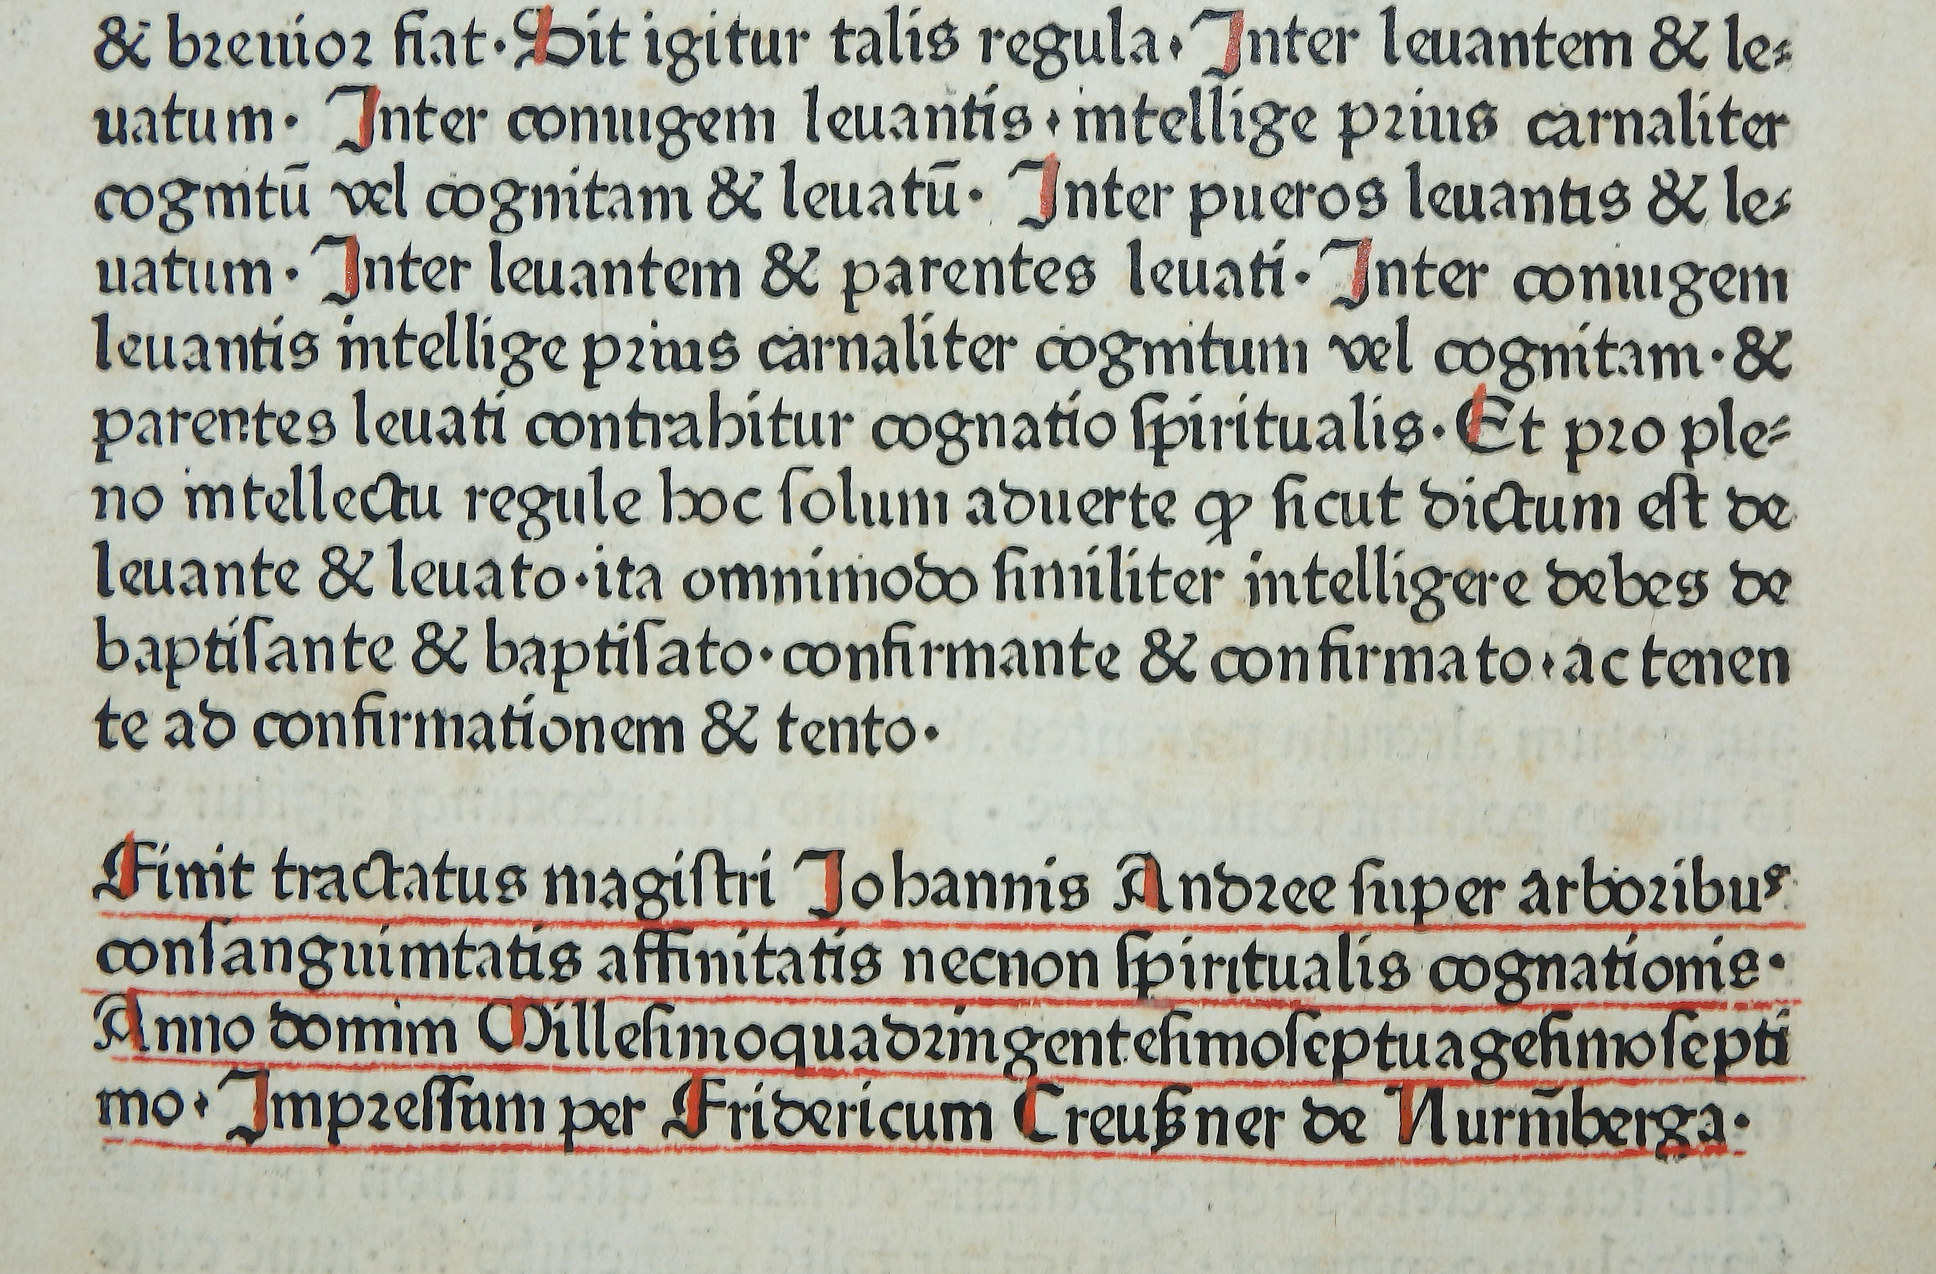 & breuior fiat. Sit igitur talis regula. Inter leuantem & le⸗
uatum. Inter coniugem leuantis. intellige prius carnaliter
cognitū vel cognitam & leuatū. Inter pueros leuantis & le⸗
uatum. Inter leuantem & parentes leuati. Inter coniugem
leuantis intellige prius carnaliter cognitum vel cognitam. &
parentes leuati contrahitur cognatio ſpiritualis. Et pro ple⸗
no intellectu regule hoc ſolum aduerte ꝙ ſicut dictum eſt de
leuante & leuato. ita omnimodo ſimiliter intelligere debes de
baptiſante & baptiſato. confirmante & confirmato. ac tenen
te ad confirmationem & tento.
Finit tractatus magiſtri Johannis Andree ſuper arboribus
conſanguinitatis affinitatis necnon ſpiritualis cognationis.
Anno domini Milleſimoquadringenteſimoſeptuageſimoſepti
mo. Impreſſum per Fridericum Creußner de Nurm̄berga.